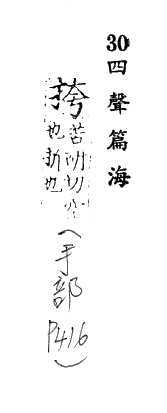 30 四聲篇海
挎 苦胡切
也折也
(手部 P416)